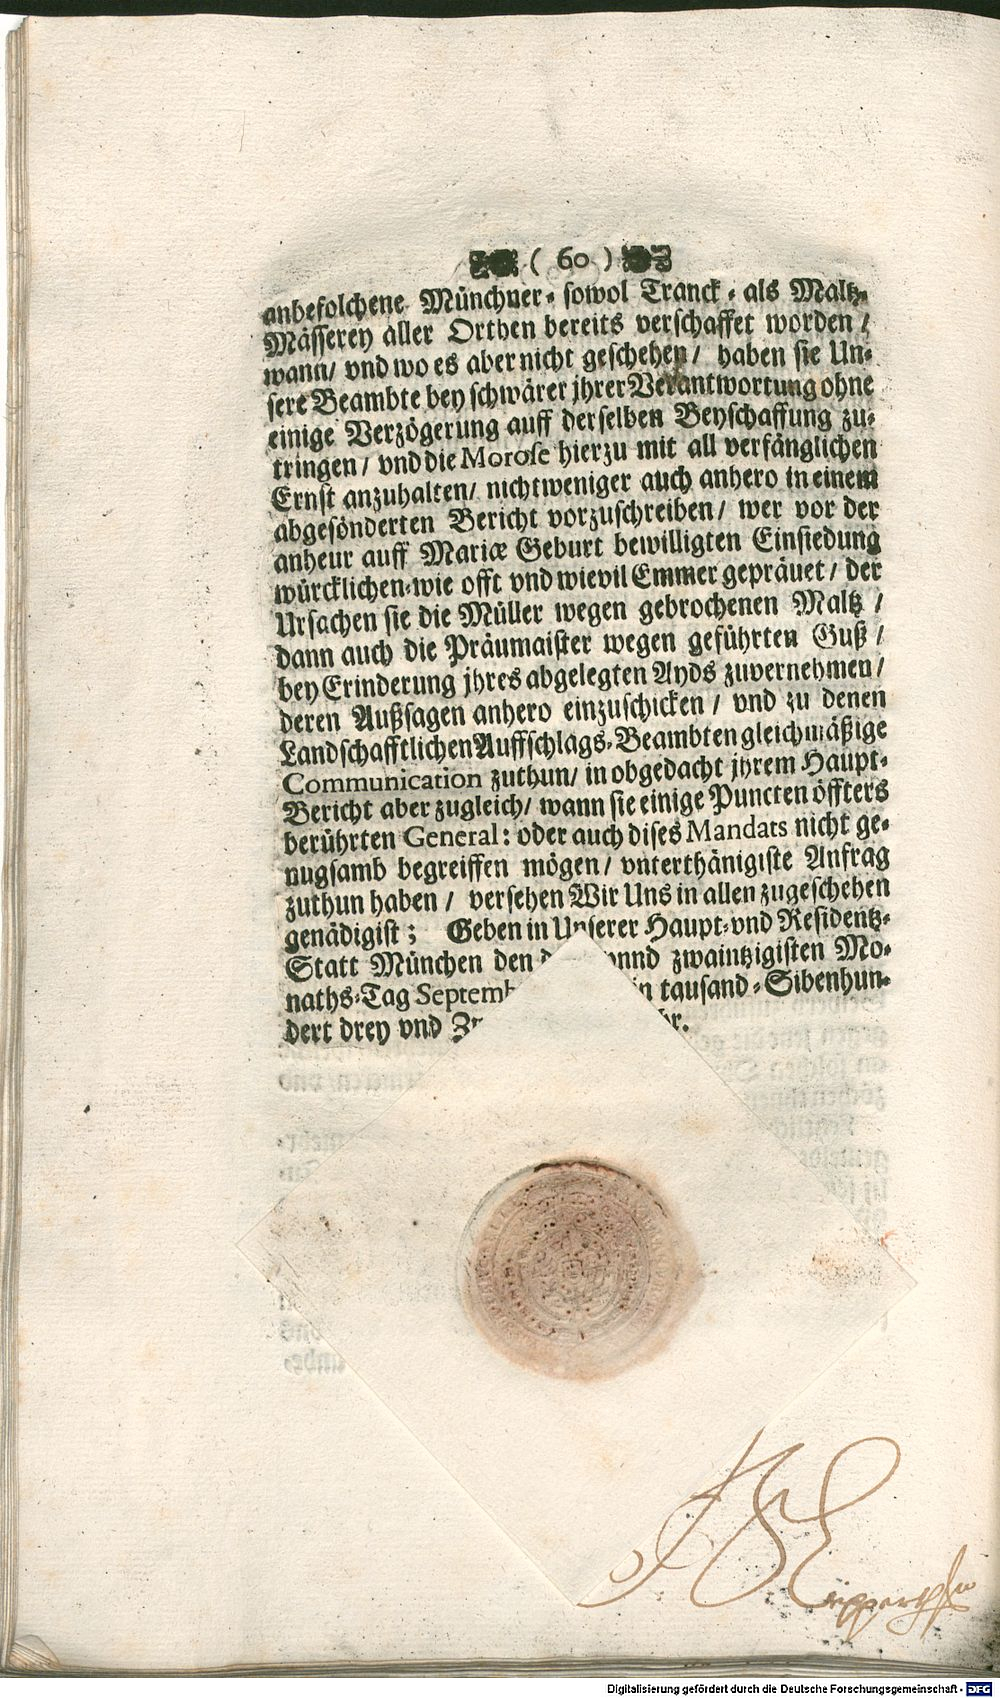 ( 60 )
anbefolchene Münchner- sowol Tranck- als Maltz-
Mässerey aller Orthen bereits verschaffet worden /
wann / vnd wo es aber nicht geschehen / haben sie Un-
sere Beambte bey schwärer jhrer Verantwortung ohne
einige Verzögerung auff derselben Beyschaffung zu-
tringen / vnd die Morose hierzu mit all verfänglichen
Ernst anzuhalten / nicht weniger auch anhero in einem
abgesönderten Bericht vorzuschreiben / wer vor der
anheur auff Mariæ Geburt bewilligten Einsiedung
würcklichen-wie offt vnd wievil Emmer gepräuet / der
Ursachen sie die Müller wegen gebrochenen Maltz /
dann auch die Präumaister wegen geführten Guß /
bey Erinderung jhres abgelegten Ayds zuvernehmen /
deren Außsagen anhero einzuschicken / vnd zu denen
Landschafftlichen Auffschlags-Beambten gleichmäßige
Communication zuthun / in obgedacht jhrem Haupt-
Bericht aber zugleich / wann sie einige Puncten öffters
berührten General: oder auch dises Mandats nicht ge-
nugsamb begreiffen mögen / vnterthänigiste Anfrag
zuthun haben / versehen Wir Uns in allen zugeschehen
genädigist; Geben in Unserer Haupt-vnd Residentz-
Statt München den d unnd zwaintzigisten Mo-
naths-Tag Septemb in tausand-Sibenhun-
dert drey vnd Zw hr.
Digitalisierung gefördert durch die Deutsche Forschungsgemeinschaft - DFG